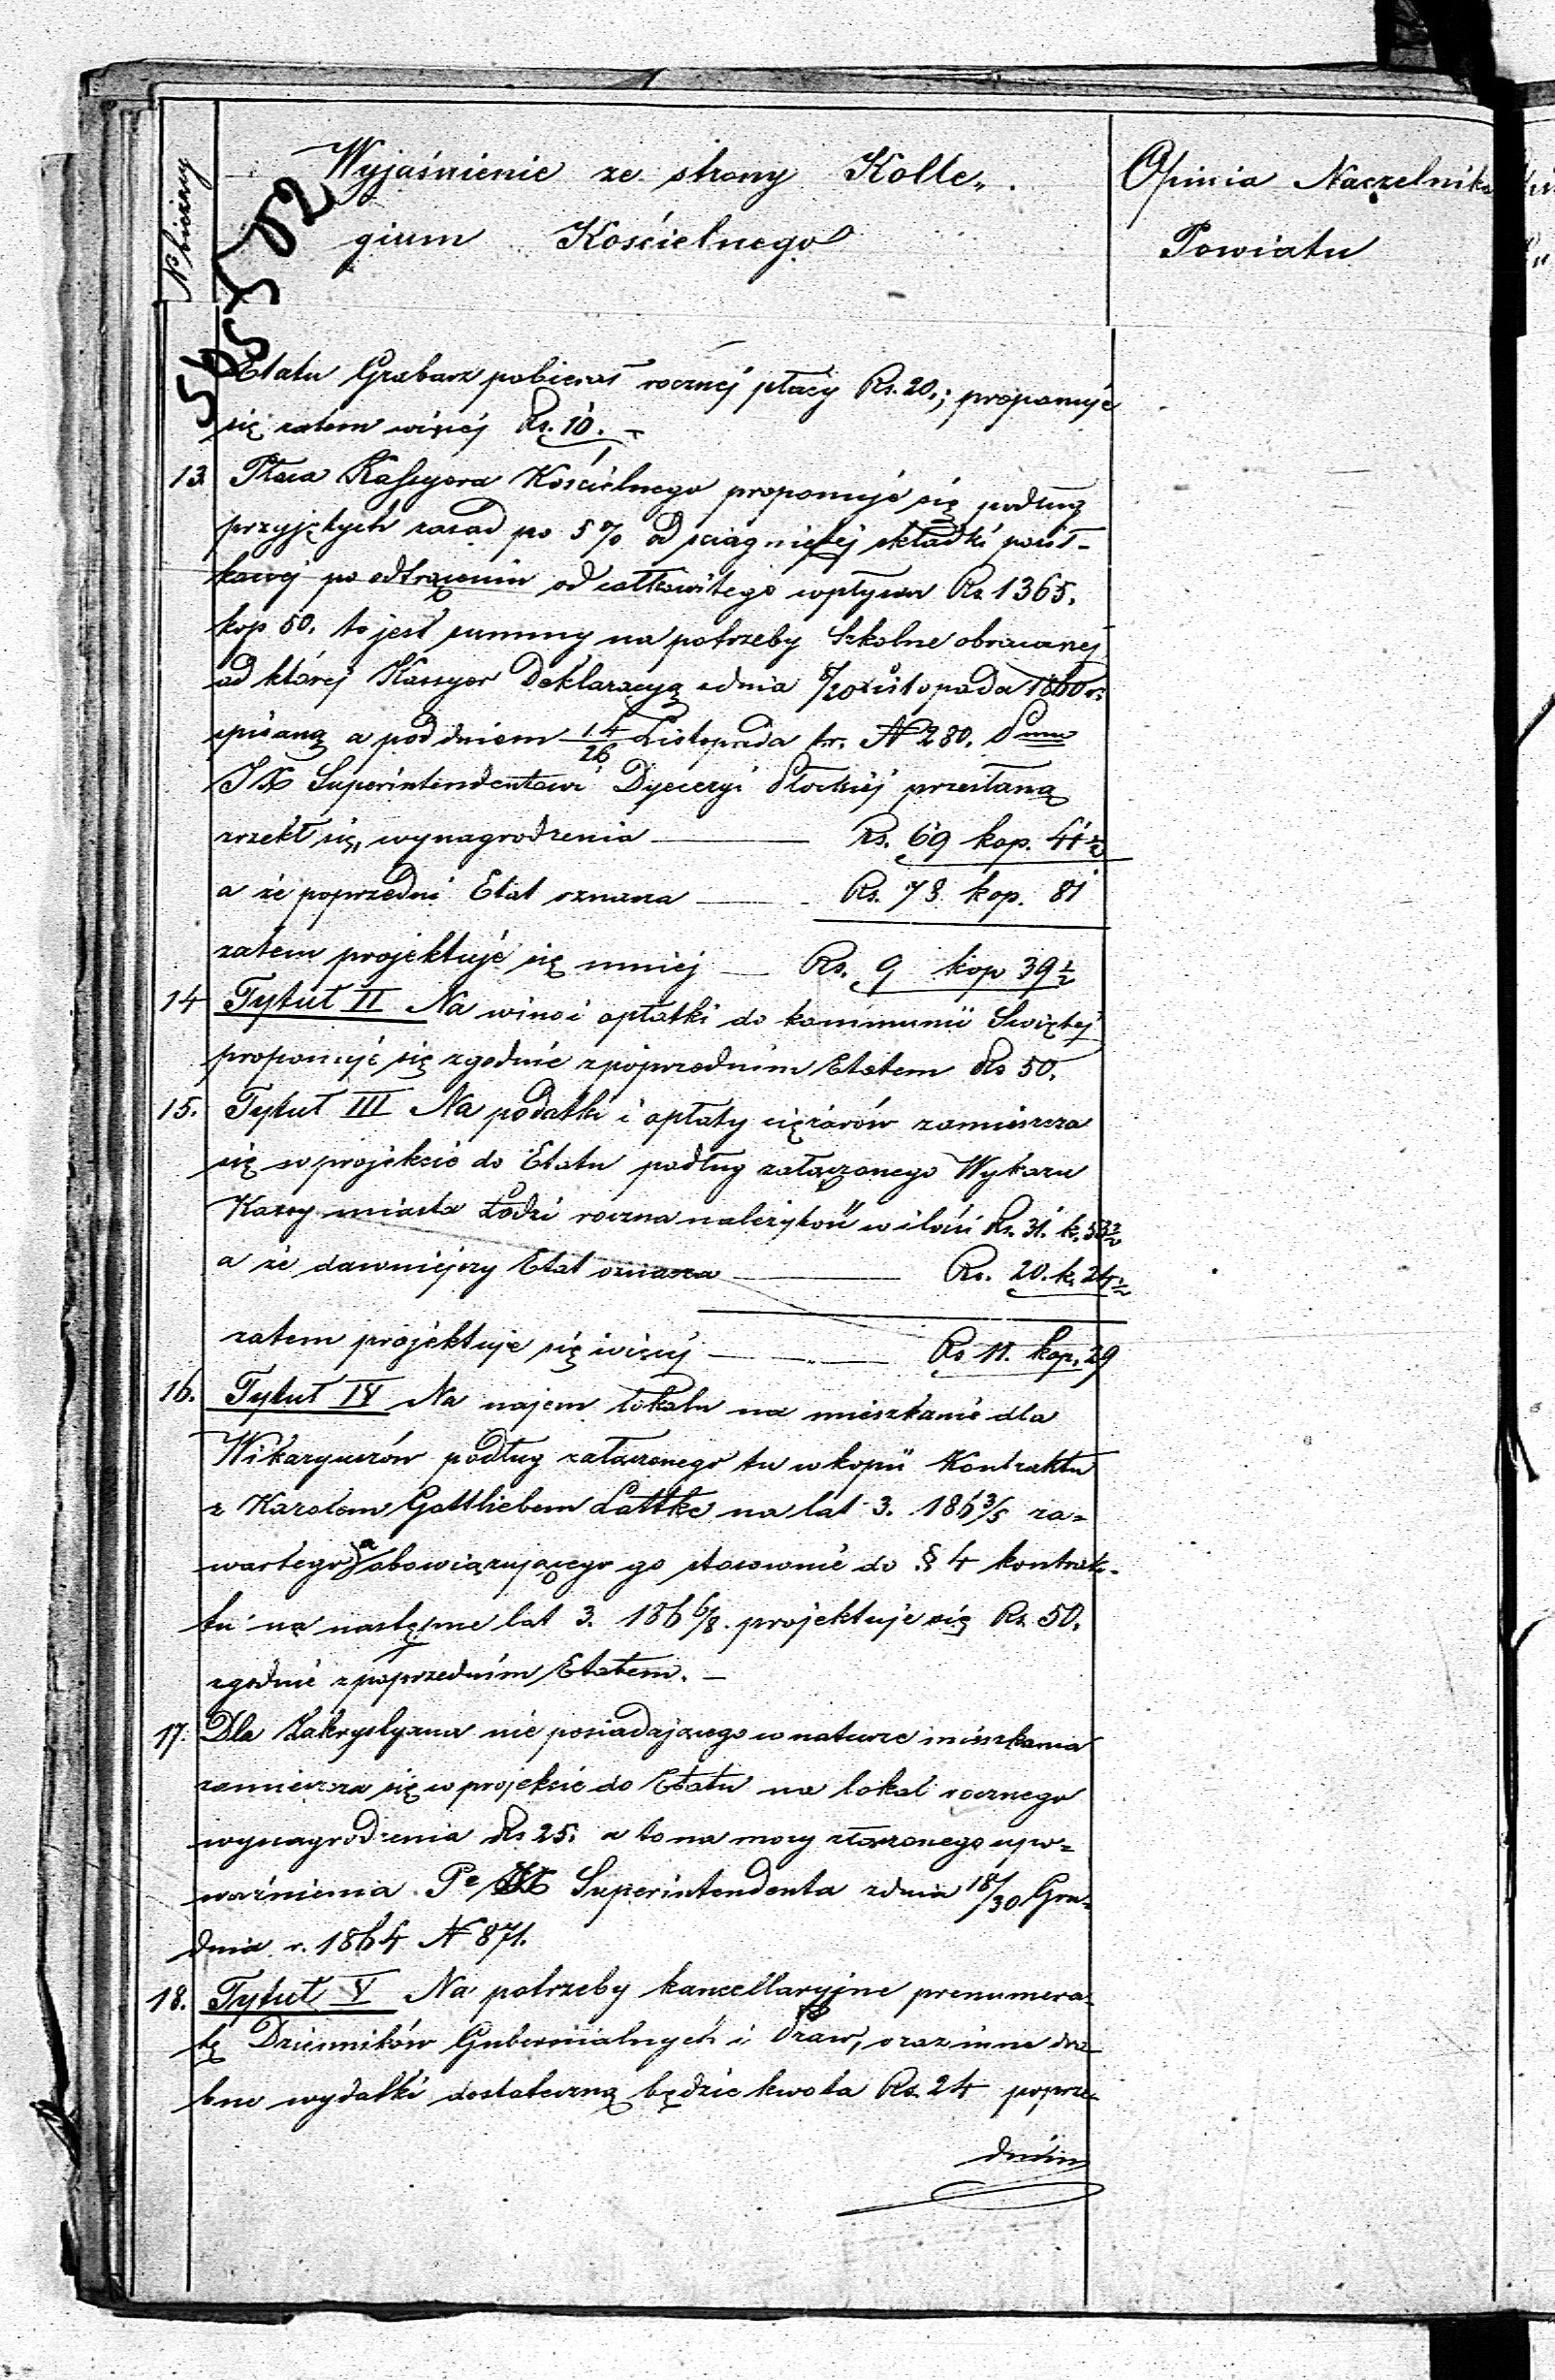 N bieżący
Wyjaśnienie ze strony Kolle„
gium Kościelnego
Opinia Naczelnika
Powiatu
Etatu Grabarz pobierał rocznéj płacy Rs. 20.; proponuje
się zatem więcéj Rs. 10. –
13. Płaca Kassyera Kościelnego proponuje się podług
przyjętych zasad po 5% od ściągniętéj składki posił-
kowéj po odtrąceniu od całkowitego wpływu Rs. 1365.
kop 50. to jest summy na potrzeby Szkolne obracanéj
od któréj Kassyer Deklaracyą zdnia 8/20 Listopada 1860 r.
spisaną a pod dniem 14/26 Listopada tr. N 280.
JX Superintendentowi Dyecezyi Płockiéj przesłaną
zrzekł się, wynagrodzenia Rs. 69 kop. 41 ½
a że poprzedni Etat oznacza Rs. 78 kop. 81
zatem projektuje się mniéj Rs. 9 kop 39 ½
14 Tytuł II Na wino i opłatki do kommunii Świętéj
proponuje się zgodnie zpoprzednim Etatem Rs 50.
15. Tytuł III Na podatki i opłaty ciężarów zamieszcza
się w projekcie do Etatu podług załączonego Wykazu
Kassy miasta Łodzi roczna należytość w ilości Rs. 31. k. 53 ½
a że dawniejszy Etat oznacza Rs. 20. k. 24 ½
zatem projektuje się więcéj Rs 11. kop. 29
16. Tytuł IV Na najem lokalu na mieszkanie dla
Wikaryuszów podług załączonego tu w kopii Kontraktu
z Karolem Gottliebem Lattke na lat 3. 186 3/5 za-
wartego a obowiązującego go stosownie do § 4 kontrak-
tu na następne lat 3. 186 6/8. projektuje się Rs. 50.
zgodnie zpoprzednim Etatem. –
17. Dla Zakrystyana nie posiadającego w naturze mieszkania
zamieszcza się w projekcie do Etatu na lokal rocznego
wynagrodzenia Rs 25. a to na mocy złączonego upo-
ważnienia Pe JX Superintendenta zdnia 18/30 Gru-
dnia r. 1864 N 871.
18. Tytuł V Na potrzeby kancellaryjne prenumera-
tę Dzienników Gubernialnych i Praw, oraz inne dro-
bne wydatki dostateczną będzie kwota Rs. 24 poprze-
dnim